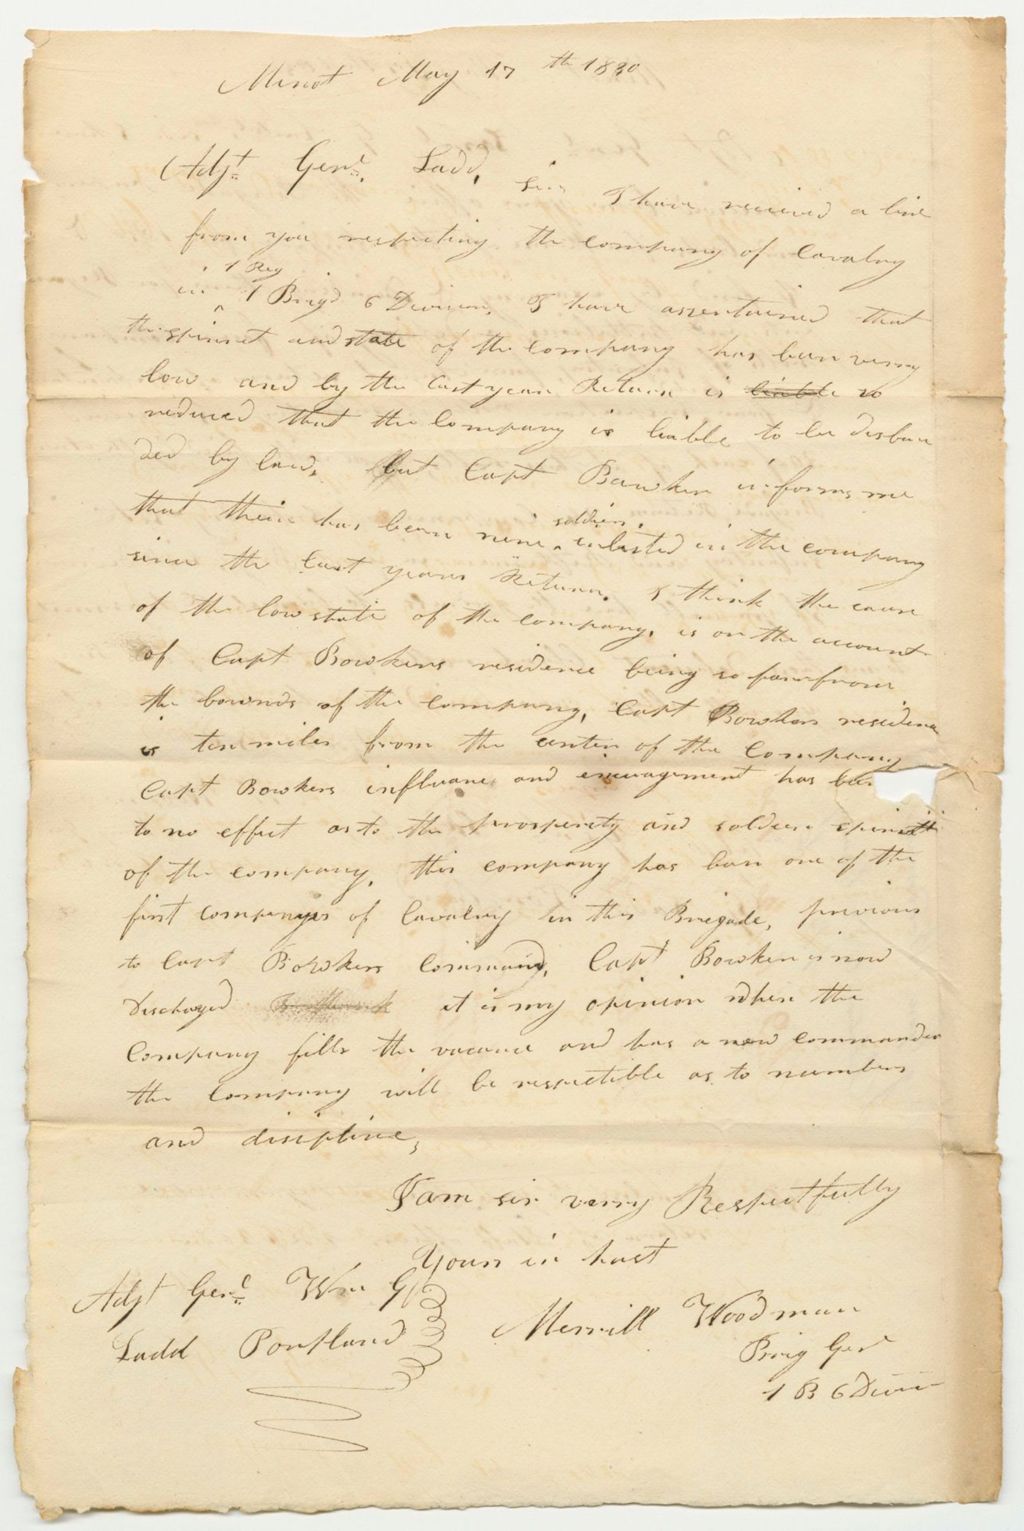 Minot May 17th 1830
Adjt Genl. Ladd, Sir I have received a line
from you respecting the company of Cavalry
1 Reg
in ^ 1 Brigd 6 Division, I have assertained that
the spirret and state of the company has been verry
low and by the last year Return is liable so
reduced that the Company is liable to be disban
ded by law, but Capt Bowker informs me
soldiers
that their has been nine ^ enlisted in the company
since the last years Return. I think the cause
of the low state of the company, is on the account
of Capt Bowkers residence being so far from
the bounds of the company, Capt Bowkers residence
is ten miles from the center of the Company
Capt Bowkers influance and encuragement has been
to no effect as to the prosperity and soldiers spirrit
of the company, this company has ben one of the
first companyes of Cavalry in this Brigade, previous
to Capt Bowkers Command, Capt Bowker is now
Discharged it is my opinion when the
Company fills the vacance and has a new commander
the Company will be respectible as to numbers
and disipline,
I am sir verry Respectfully
Yours in hast
Adjt Genl Wm G
Ladd Portland
Merrill Woodman
Brig Genl
1 B 6 Divis